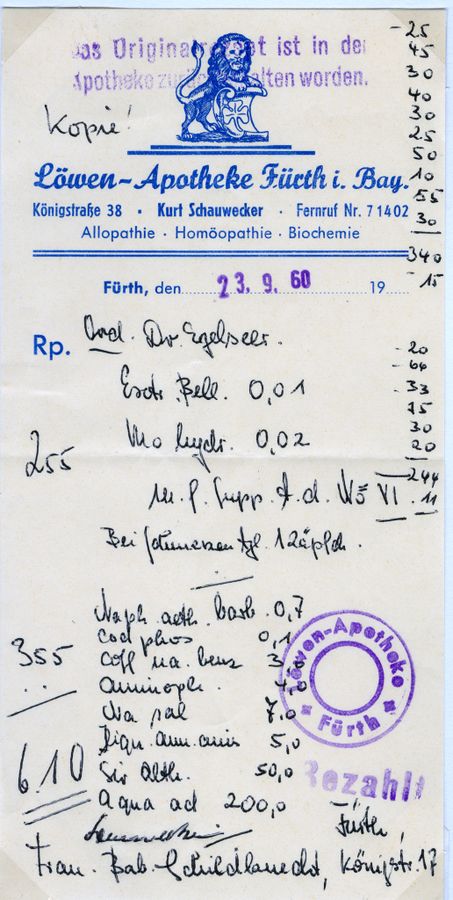 Das Original ist in der
Apotheke worden.
Kopie!
Löwen-Apotheke Fürth i. Bay.
Königstraße 38 · Kurt Schauwecker · Fernruf Nr. 71402
Allopathie · Homöopathie · Biochemie
Fürth, den 23. 9. 60 19
-25
45
30
40
30
25
50
10
55
30
340
15
Rp. Ord. Dr Egelseer.
Extr. Bell. 0,01
0,02
255
M. f. Supp. A. d. VI
Bei Schmerzen tgl. 1 Zäpfch.
-20
33
30
20
244
11
Naph. aeth. barb. 0,7
Cod phos 0,1
355
Coff na. benz 3,0
Aminoph. 4,0
Na sal 7,0
Liqu. amm. anis 5,0
6.10
Sir alth. 50,0
Aqua ad 200,0
Löwen-Apotheke
Fürth
Bezahlt
Fürth,
Frau. Bab. Schildknecht, Königstr. 17